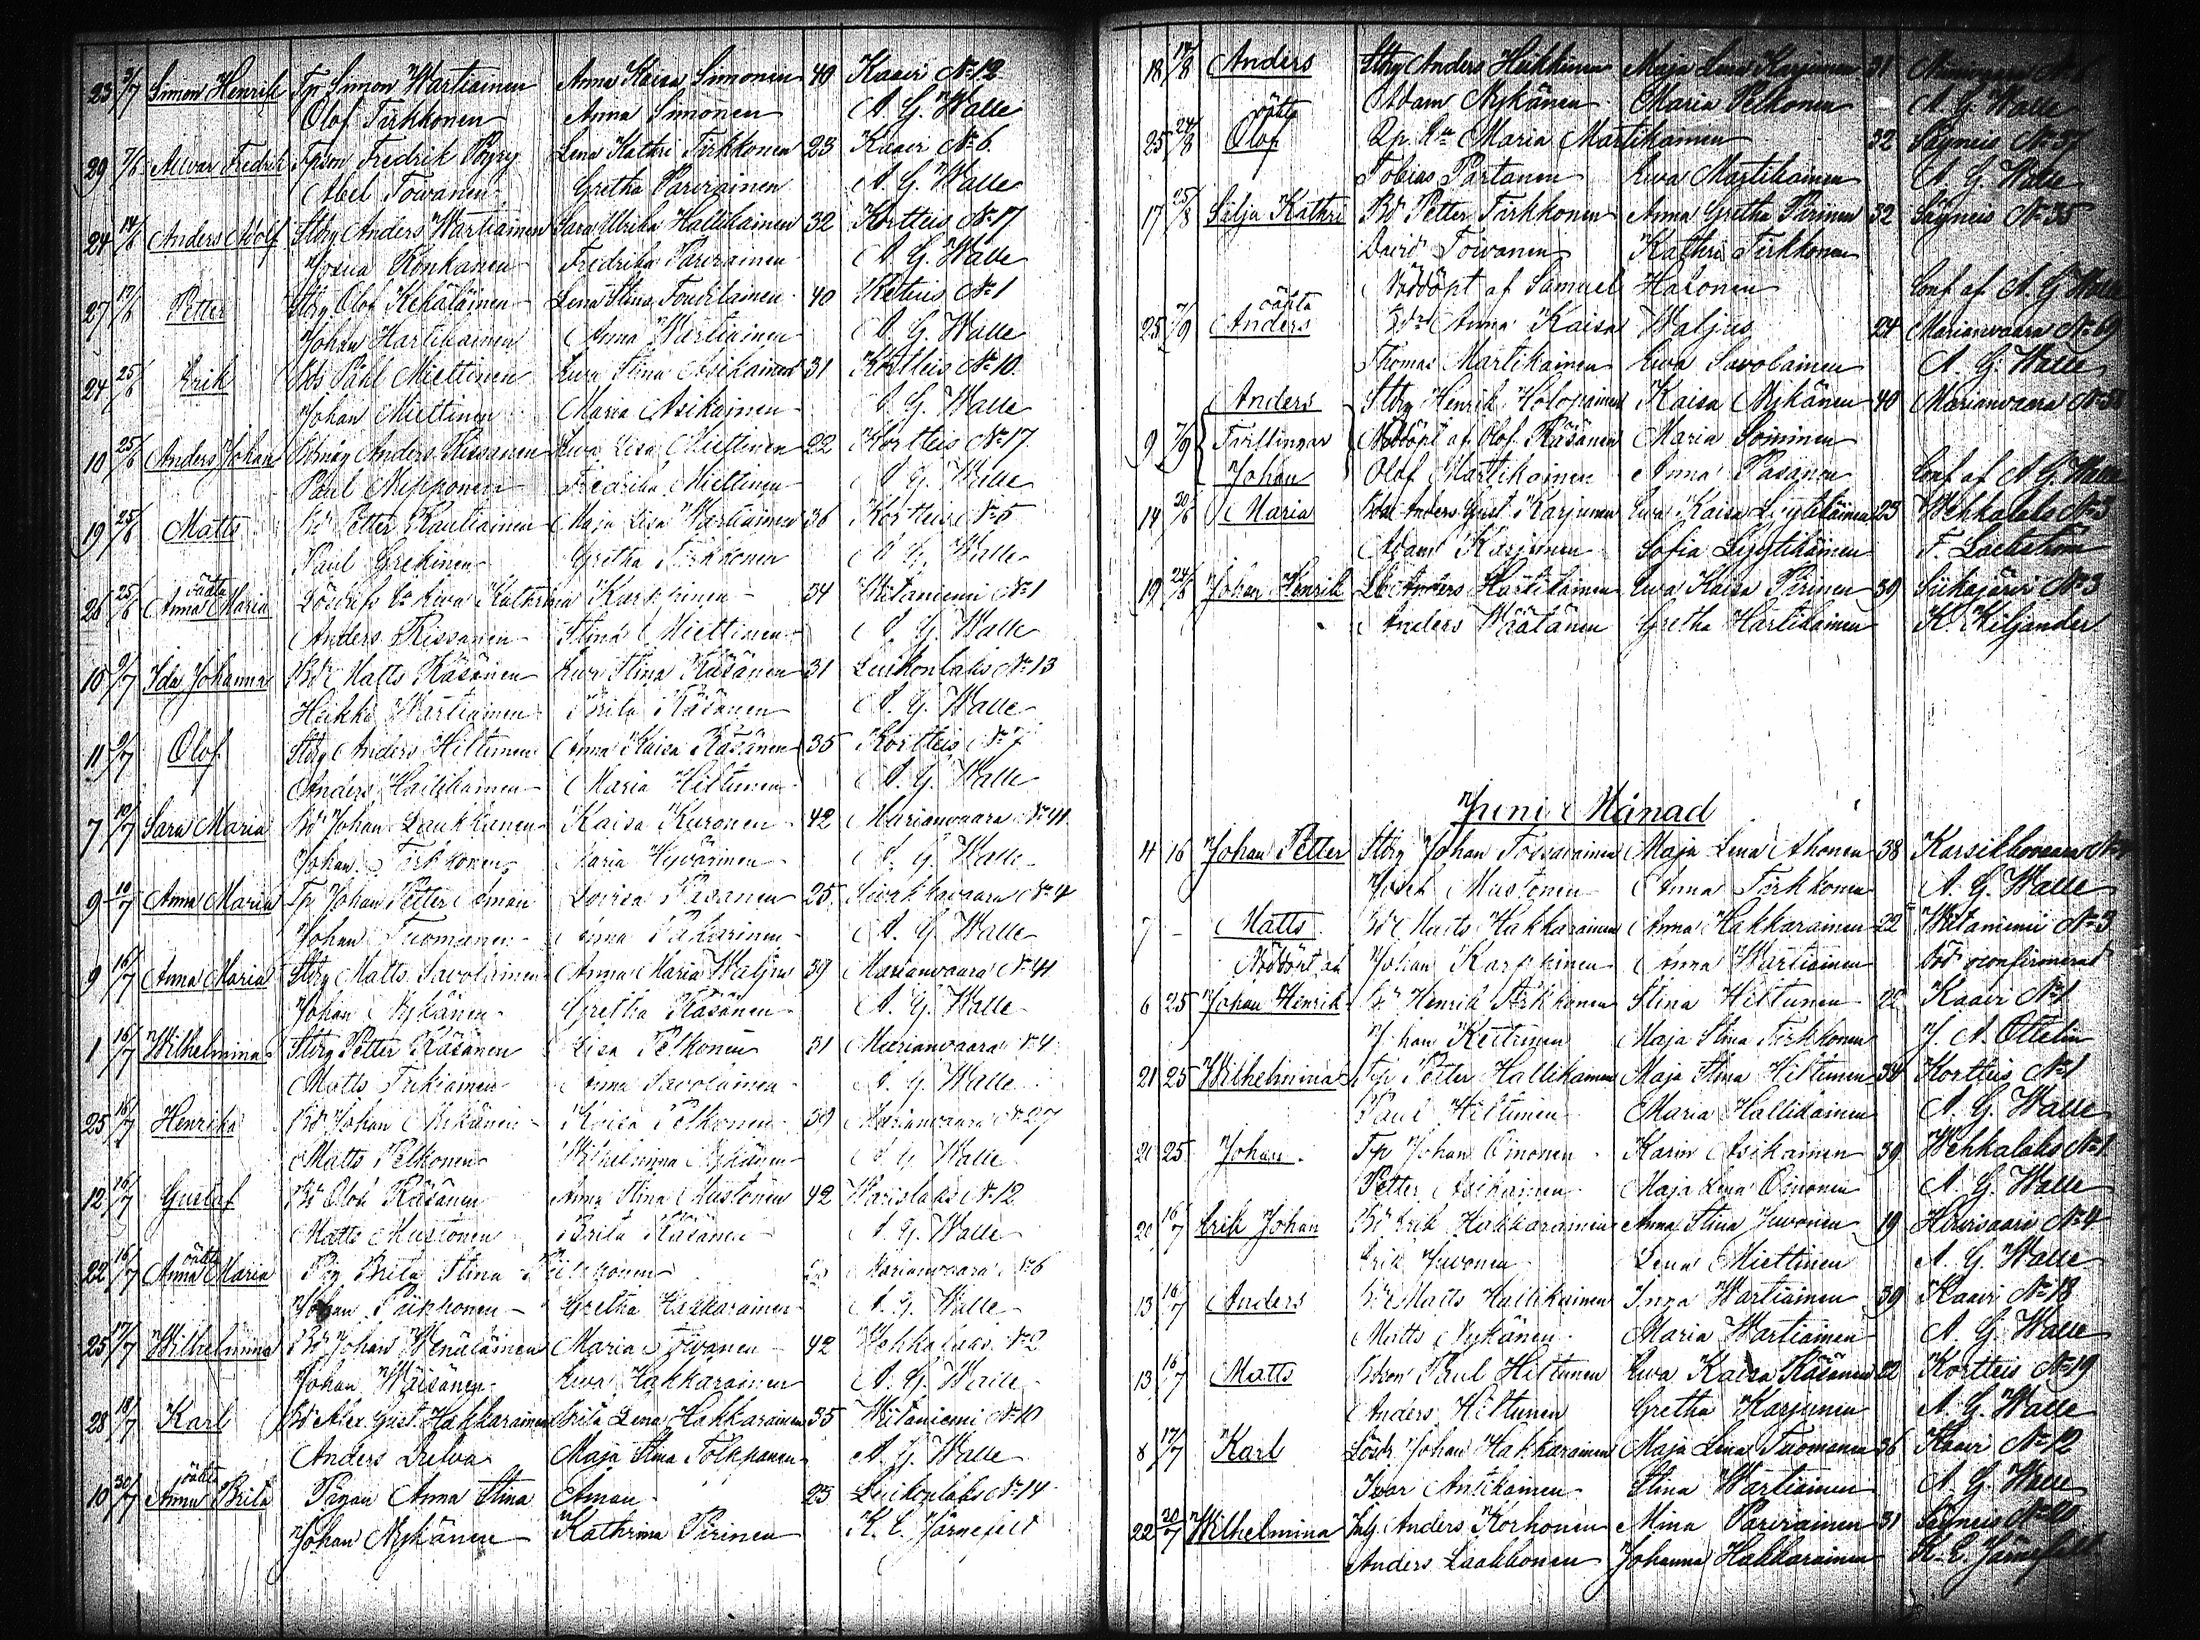 23 3/7 Simon Henrik Tp Simon Wartiainen Anna Kaisa Simonen 40 Kaavi No 12
Olof Tirkkonen Anna Simonen A. G. Walle
29 7/6 Alwar Fredrik Tpson Fredrik Lena Kathri Tirkkonen 23 Kaavi No 6
Abel Toivanen Gretha Parviainen A. G. Walle
24 14/6 Anders Adolf Stbg Anders Wartiainen Sara Ulrika Hallikainen 32 Kortteis No 17
Josua Konkanen Fredrika Parviainen A. G. Walle
27 17/6 Petter Stbg Olof Kekäläinen Lena Stina 40 Retuis No 1
Johan Hartikainen Anna Wartiainen A. G. Walle
24 25/6 Erik Påhl Miettinen Ewa Stina Asikainen 31 Kortteis No 10
Johan Miettinen Maria Asikainen A. G. Walle
10 25/6 Anders Johan Anders Rissanen Ewa Lisa Miettinen 22 Kortteis No 17
Paul Fredrika Miettinen A. G. Walle
19 25/6 Matts Bd Petter Rautiainen Maja Lisa Wartiainen 36 Kortteis No 5
Paul Gretha Tirkkonen A. G. Walle
oäkta
26 25/6 Anna Maria Ewa Kathrina Karppinen 34 Witaniemi No 1
Anders Rissanen Stina Miettinen A. G. Walle
10 9/7 Ida Johanna Bd Matts Räsänen Ewa Stina Räsänen 31 Luikonlaks No 13
Heikki Wartiainen Brita Räsänen A. G. Walle
11 9/7 Olof Stbg Anders Hiltunen Anna Kaisa Räsänen 35 Kortteis No 7
Anders Maria Hiltunen A. G. Walle
7 10/7 Sara Maria Bd Johan Laukkanen Kaisa Kuronen 42 Marianvaara No 41
Johan Tirkkonen Maria Hyvärinen A. G. Walle
9 10/7 Anna Maria Tp Johan Petter Loviisa Räsänen 25 Sivakkavaara No 4
Johan Tuomainen Anna Pakarinen A. G. Walle
9 16/7 Anna Maria Stbg Matts Savolainen Anna Maria Waljus 39 Marianvaara No 41
Johan Nykänen Gretha Räsänen A. G. Walle
1 16/7 Wilhelmina Stbg Petter Räsänen Lisa Pelkonen 31 Marianvaara No 4
Matts Anna Savolainen A. G. Walle
25 16/7 Henrika Bd Johan Nykänen Kaisa Pelkonen 39 Marianvaara No 27
Matts Pelkonen Wilhelmina Nykänen A. G. Walle
12 16/7 Gustaf Bd Olof Räsänen Anna Stina Mustonen 42 Waristaks No 12
Matts Mustonen Brita Räsänen A. G. Walle
oäkta
22 16/7 Anna Maria Pig Brita Stina Marianvaara No 6
Johan Gretha Hakkarainen A. G. Walle
25 17/7 Wilhelmina Bd Johan Wenäläinen Maria Toivanen 42 Wehkalaks No 2
Johan Wäisänen Ewa Hakkarainen A. G. Walle
28 18/7 Karl Bd Alex. Gust. Hakkarainen Brita Lena Hakkarainen 35 Witaniemi No 10
Anders Maja Stina Tolkpanen A. G. Walle
oäkta
10 30/7 Anna Brita Pigan Anna Stina Eman 23 Luikonlaks No 14
Johan Nykänen Kathrina Pirinen K. E. Järnefelt
18 17/8 Anders Stbg Anders Heikkinen Maja Lena Karjunen 31
Adam Nykänen Maria Pelkonen A. G. Walle
oäkta
25 24/8 Olof Maria Martikainen 32 Säyneis No 37
Tobias Partanen Ewa Martikainen A. G. Walle
17 25/8 Silja Kathri Bd Petter Tirkkonen Anna Gretha Pirinen 32 Säyneis No 35
David Toivanen Kathri Tirkkonen
Nöddöpt af Samuel Halonen Conf af A. G. Walle
oäkta
25 7/9 Anders Anna Kaisa Waljus 24 Marianvaara No 69
Thomas Martikainen Ewa Savolainen A. G. Walle
Anders Stbg Henrik Holopainen Kaisa Nykänen 40 Marianvaara
9 7/9 Tvillingar Nöddöpt af Olof Räsänen Maria Soininen
Johan Olof Martikainen Anna Räsänen Conf af A. G. Walle
14 20/6 Maria Anders Gust. Karjunen Ewa Kaisa Lyytikäinen 23 Wehkalaks No 3
Adam Karjunen Sofia Lyytikäinen F. Lackström
19 24/6 Johan Henrik Anders Hartikainen Ewa Kaisa Pirinen 39 Siikajärvi No 3
Anders Wäätänen Gretha Hartikainen K. Kiljander
Juni Månad
4 16 Johan Petter Stbg Johan Toivarainen Maja Lena Ahonen 38
Josef Mustonen Anna Tirkkonen A. G. Walle
7 - Matts Bd Matts Hakkarainen Anna Hakkarainen 22 Witaniemi No 3
Nöddöpt af Johan Karppinen Anna Wartiainen död oconfirmerad
6 25 Johan Henrik Henrik Tirkkonen Stina Hiltunen 22 Kaavi No 1
Johan Keitunen Maja Stina Tirkkonen J. A. Ottelin
21 25 Wilhelmina Tp Petter Hallikainen Maja Stina Hiltunen 34 Kortteis No 1
Paul Hiltunen Maria Hallikainen A. G. Walle
21 25 Johan Tp Johan Oinonen Karin Asikainen 39 Wehkalaks No 1
Petter Asikainen Maja Lena Oinonen A. G. Walle
20 16/7 Erik Johan Bd Erik Hakkarainen Anna Stina Juvonen 19 No 4
Erik Juvonen Lena Miettinen A. G. Walle
13 16/7 Anders Bd Matts Inga Wartiainen 39 Kaavi No 18
Matts Nykänen Maria Wartiainen A. G. Walle
13 16/7 Matts Bdson Paul Hiltunen Ewa Kaisa Räsänen 22 Kortteis No 19
Anders Hiltunen Gretha Karjunen A. G. Walle
8 17/7 Karl Lösdr. Johan Hakkarainen Maja Lena Tuomainen 36 Kaavi No 12
Ivar Antikainen Stina Wartiainen A. G. Walle
22 20/7 Wilhelmina Anders Korhonen Mina Parviainen 31 Säyneis No 20
Anders Laakkonen Johanna Hakkarainen K. E. Järnefelt